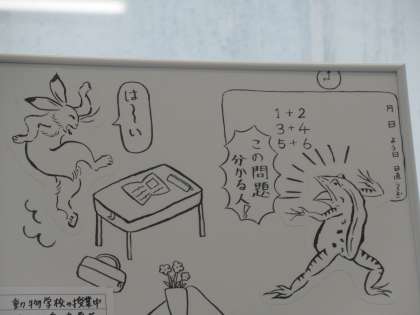 は～い
1+2
3+4
5+6
この問題
分かる人！
月
日
よう日
日直
動物学校の授業中